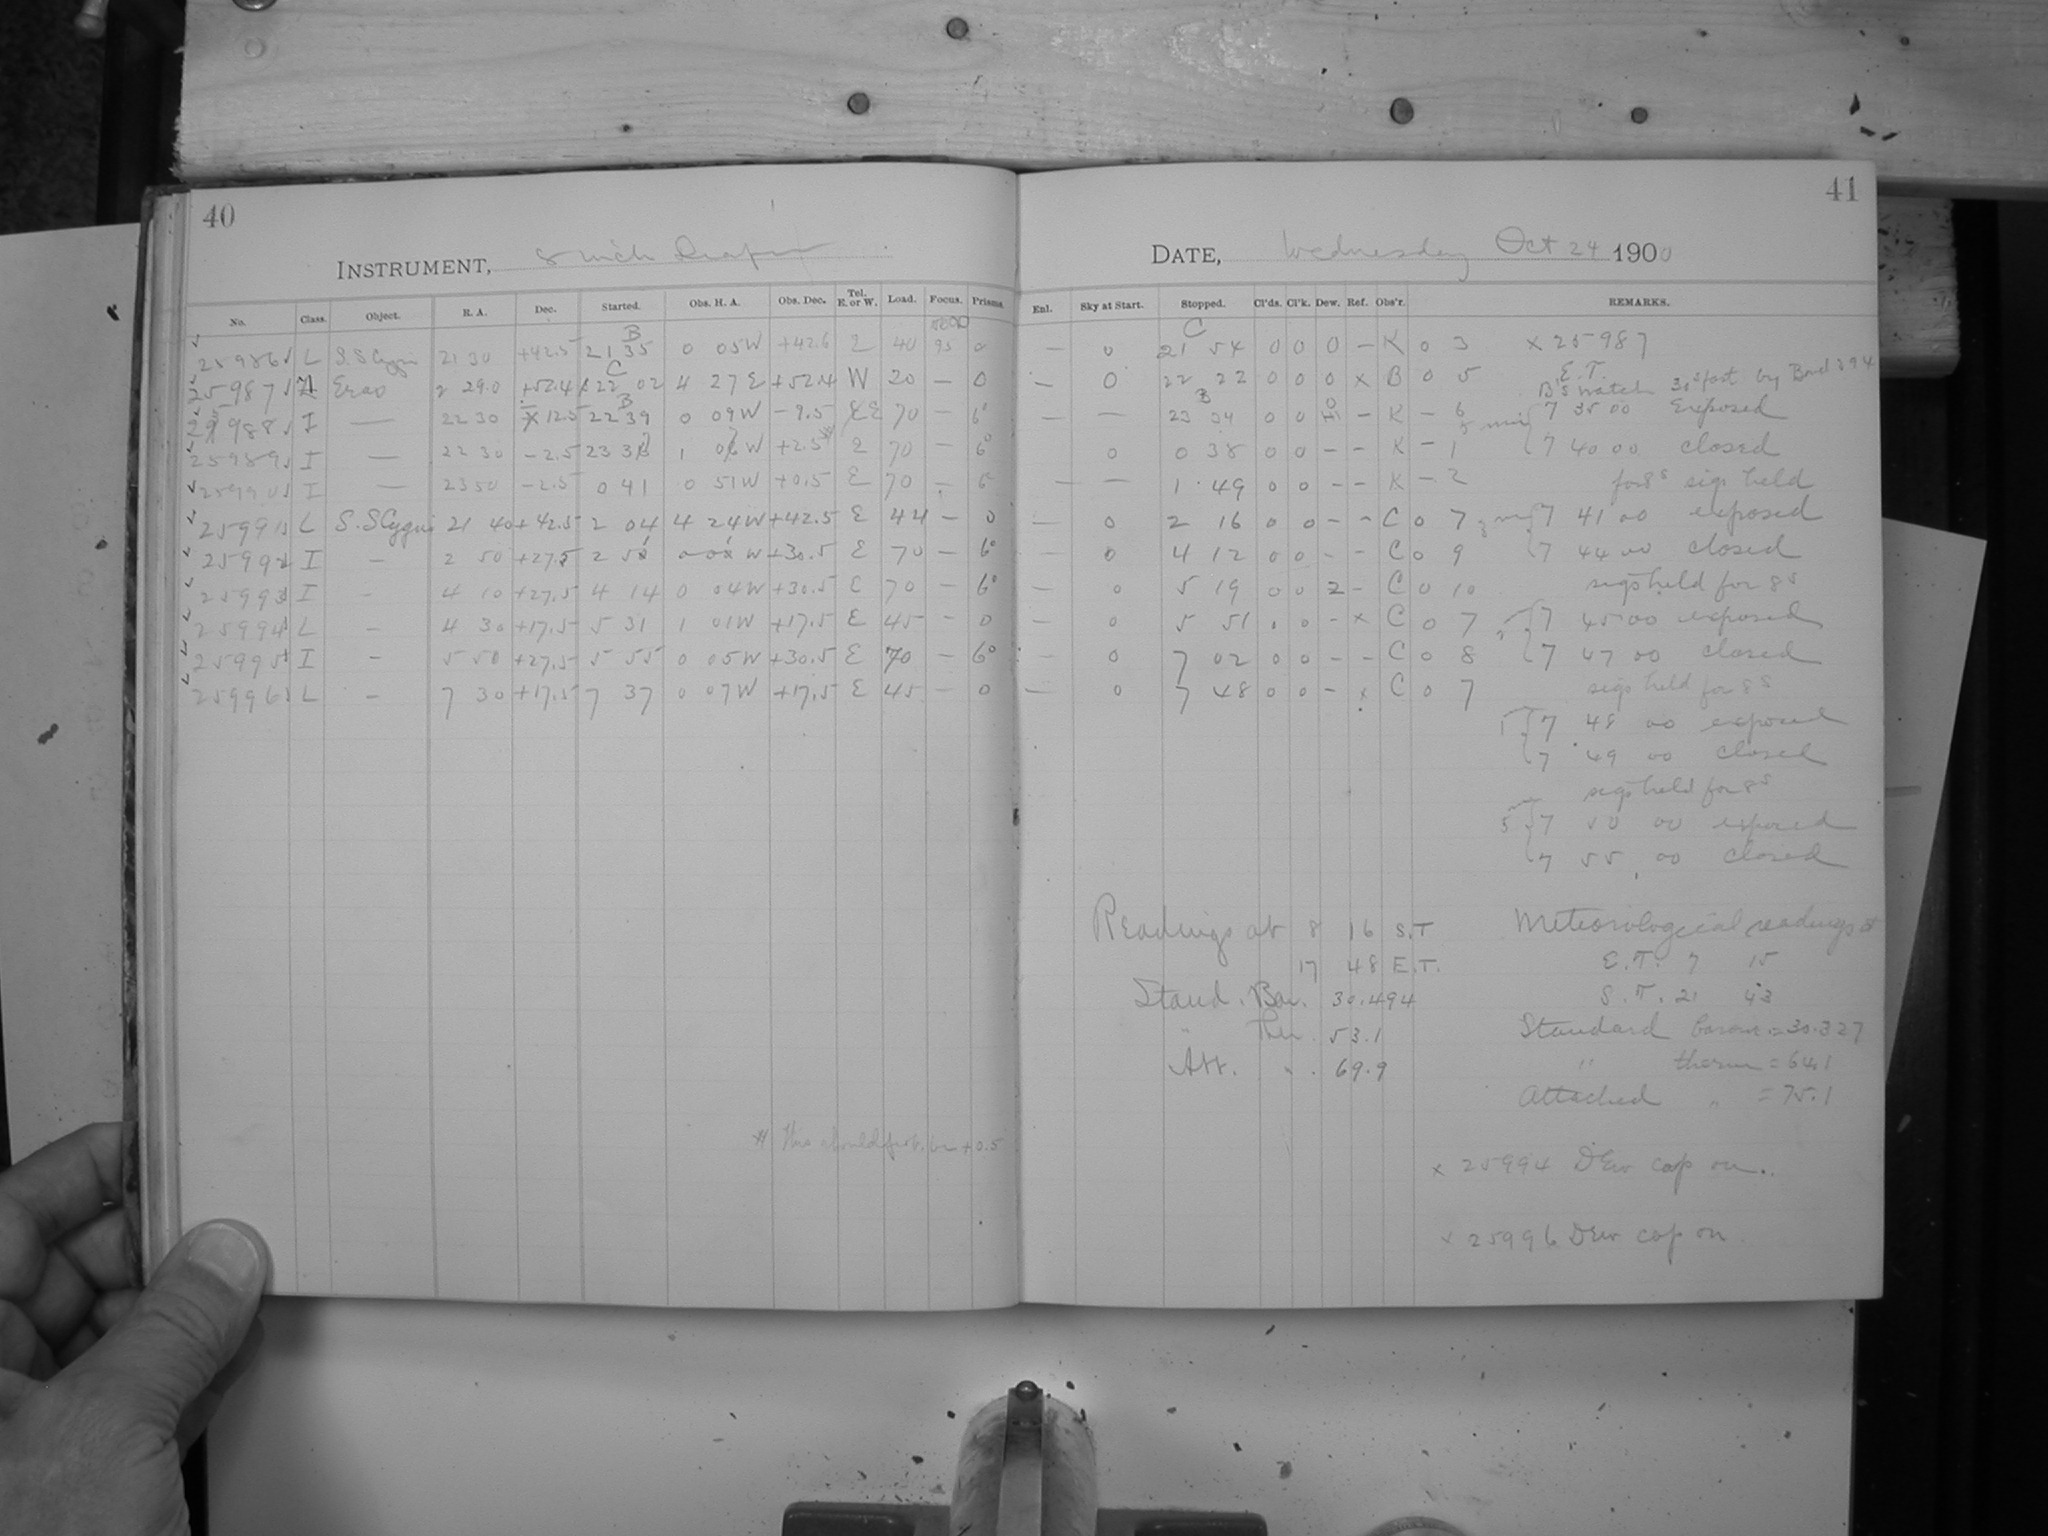 40
INSTRUMENT, 8 inch Draper
No. Class. Object. R. A. Dec. Started. Obs. H. A. Obs. Dec. Tel. E. or W. Load. Focus. Prisms.
25986 L SS Cygni 21 30 +42.5 B 21 35 0 05 W +42.6 E 40 95 0
25987 Eros 2 29.0 +52.4 C 22 02 4 27 E +52.4 W 20 — 0
25988 I — 22 30 12.5 B 22 39 0 09 W -9.5 E 70 — 6°
25989 I — 22 30 -2.5 23 3 1 W +2.5 E 70 — 6°
25990 I — 23 50 -2.5 0 41 0 51 W +0.5 E 70 — 6°
25991 L S.S Cygni 21 40 +42.5 2 04 4 24 W +42.5 E 44 — 0
25992 I — 2 50 +27.5 2 5 W +30.5 E 70 — 6°
25993 I - 4 10 +27.5 4 14 0 04 W +30.5 E 70 — 6°
25994 L - 4 30 +17.5 5 31 1 01 W +17.5 E 45 — 0
25995 I - 5 50 +27.5 5 55 0 05 W +30.5 E 70 — 6°
25996 L - 7 30 +17.5 7 37 0 07 W +17.5 E 45 — 0
# This should prob. be +0.5
41
DATE, Wednesday Oct 24 1900
Enl. Sky at Start. Stopped. Cl'ds. Cl'k. Dew. Ref. Obs'r. REMARKS.
— 0 C 21 54 0 0 0 — K 0 3 x 25987
— 0 22 22 0 0 0 x B 0 5 E.T.
B's watch 30s fast by Bond 394
— — B 23 34 0 0 — K — 6 7 35 00 exposed
0 0 38 0 0 — — K — 1 7 40 00 closed
— — 1 49 0 0 — — K — 2 for 8s sigs held
— 0 2 16 0 0 — — C 0 7 7 41 00 exposed
— 0 4 12 0 0 — — C 0 9 7 44 00 closed
— 0 5 19 0 0 2 — C 0 10 sigs held for 8s
— 0 5 51 0 0 — x C 0 7 7 45 00 exposed
— 0 7 02 0 0 — — C 0 8 7 47 00 closed
— 0 7 48 0 0 — x C 0 7 sigs held for 8s
1 7 48 00 exposed
7 49 00 closed
sigs held for 8s
5 7 50 00 exposed
7 55 00 closed
Readings at 8 16 S.T
17 48 E.T.
Stand. Bar. 30.494
" Ther. 53.1
Att. " 69.9
Meteorological readings at
E.T. 7 15
S.T. 21 43
Standard barom = 30.327
" therm = 64.1
Attached " = 75.1
x 25994 Dew cap on.
x 25996 Dew cap on